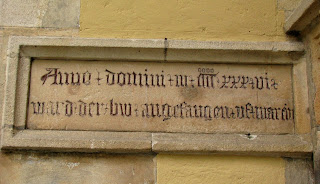 Anno + domini + m + cccc + xxx + vi +
ward · der · bw · angefangen +